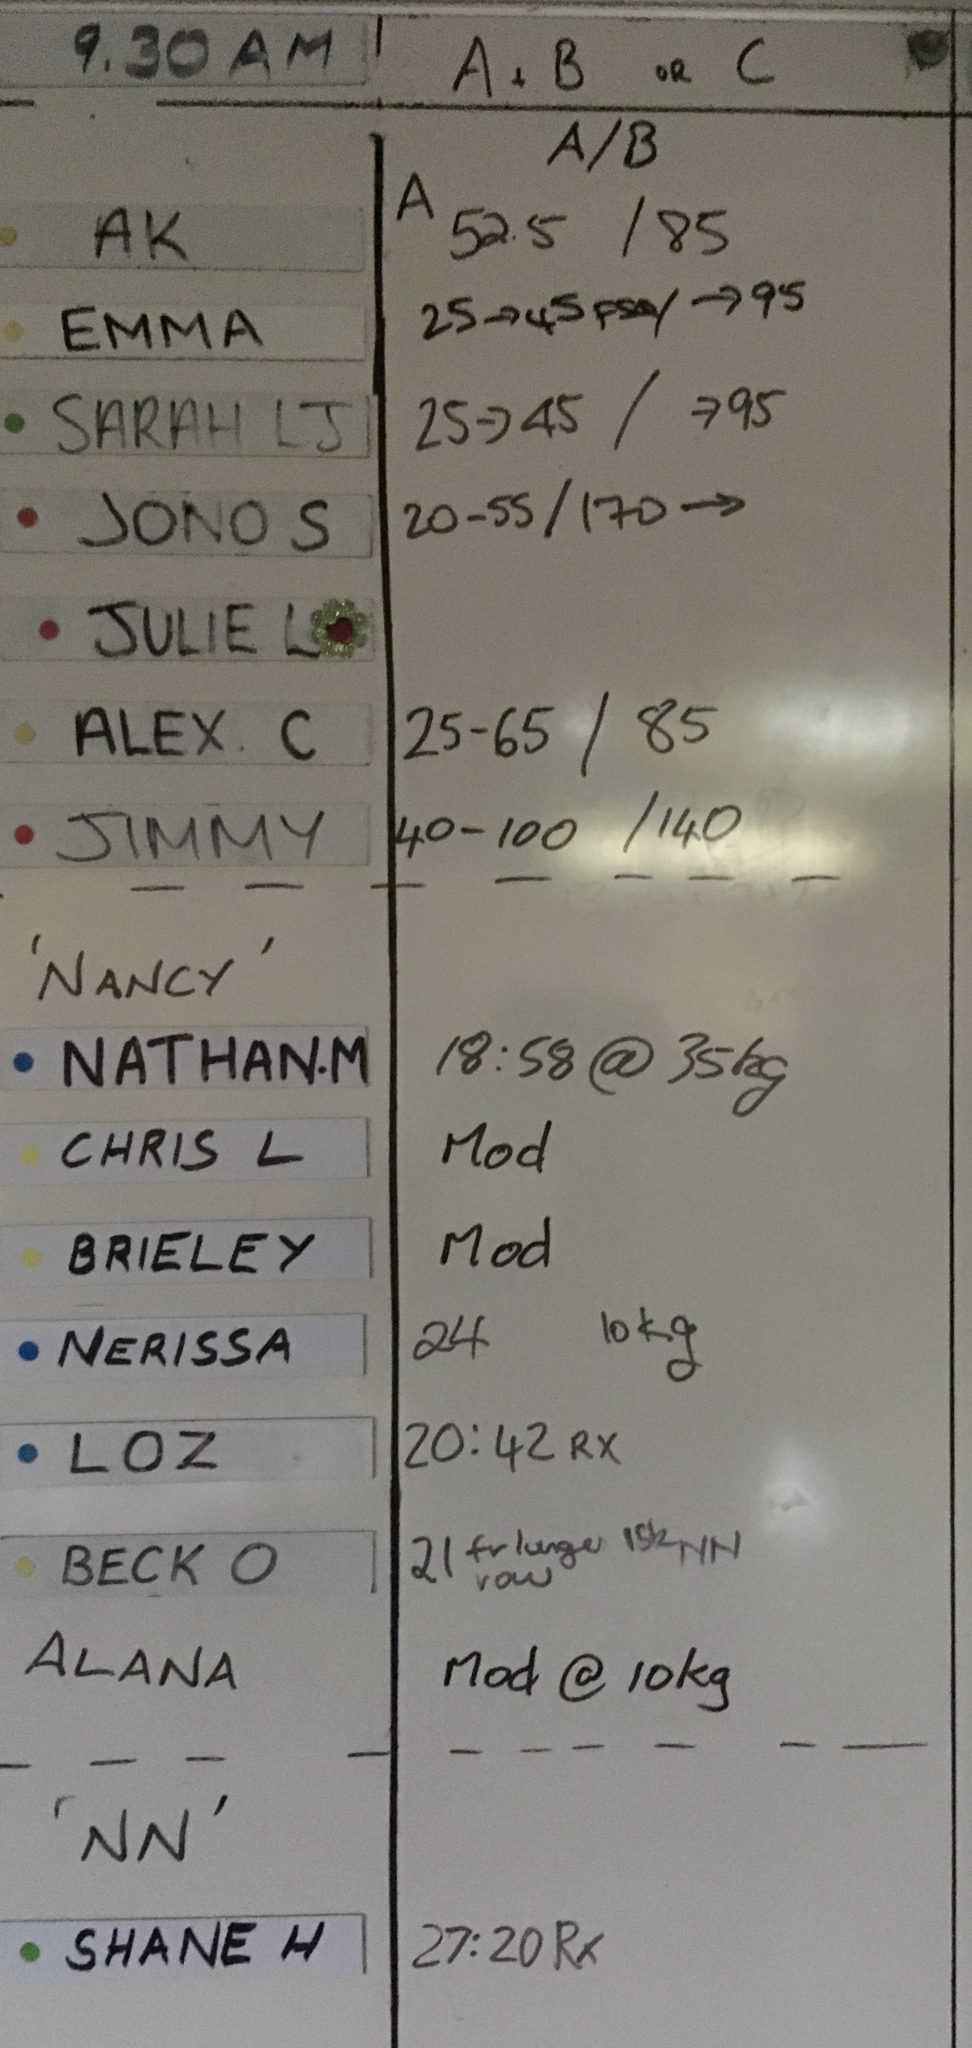 9.30 AM A + B OR C
A/B
AK A 52.5 / 85
EMMA 25→45 FSQ/ →95
SARAH LJ 25→45 / →95
JONO S 20-55/170→
JULIE L
ALEX. C 25-65 / 85
JIMMY 40-100 /140
'NANCY'
NATHAN.M 18:58 @ 35kg
CHRIS L Mod
BRIELEY Mod
NERISSA 24 10kg
LOZ 20:42 RX
BECK O 21 fr lunge 15k NN
row
ALANA Mod @ 10kg
'NN'
SHANE H 27:20 Rx